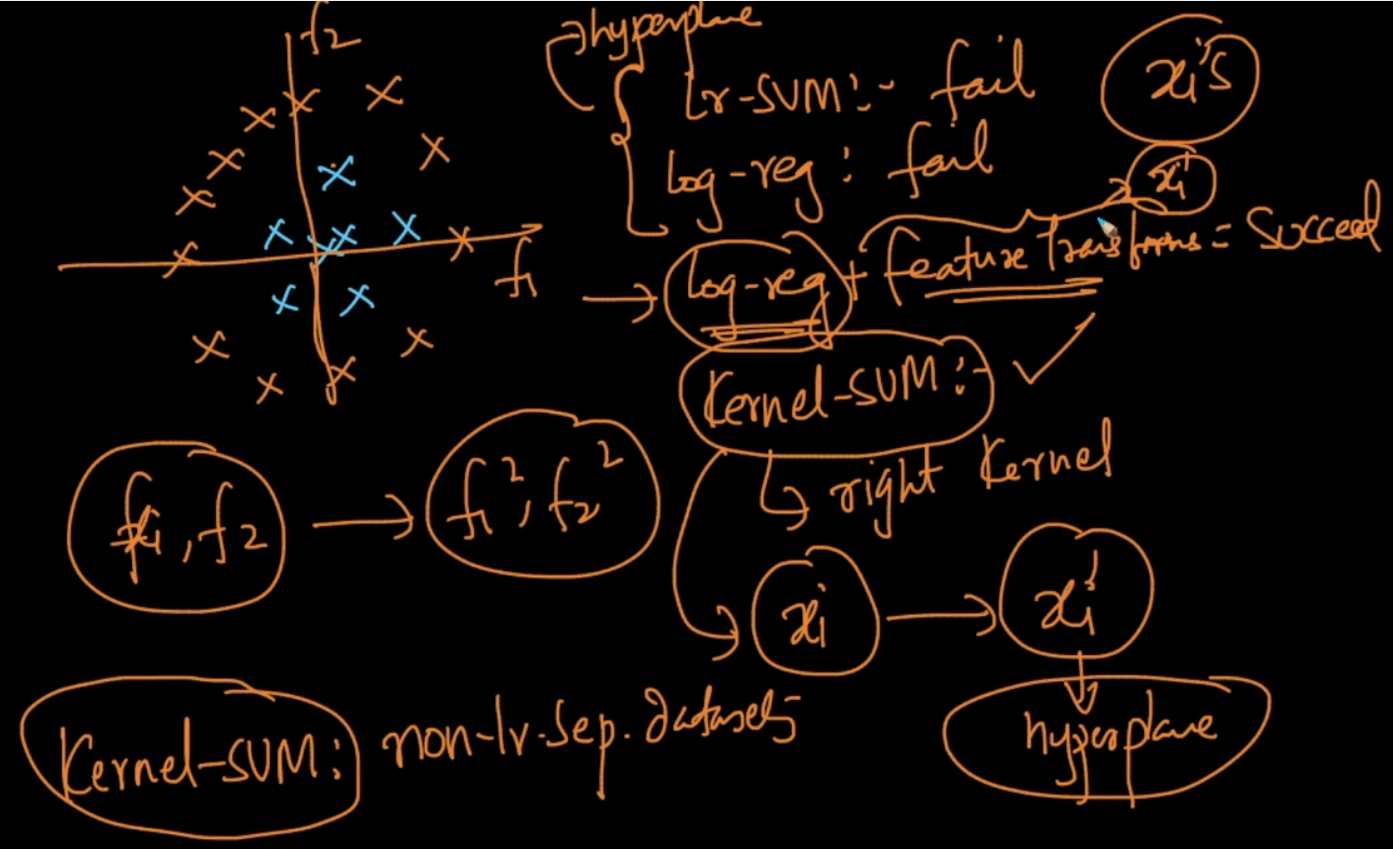 f2
f1
hyperplane
Lr-SVM:- fail
log-reg: fail
xi's
xi'
log-reg + feature Transforms = Succeed
Kernel-SVM:- ✓
right Kernel
f1, f2 → f1², f2²
xi → xi'
hyperplane
Kernel-SVM: non-lr.sep. datasets